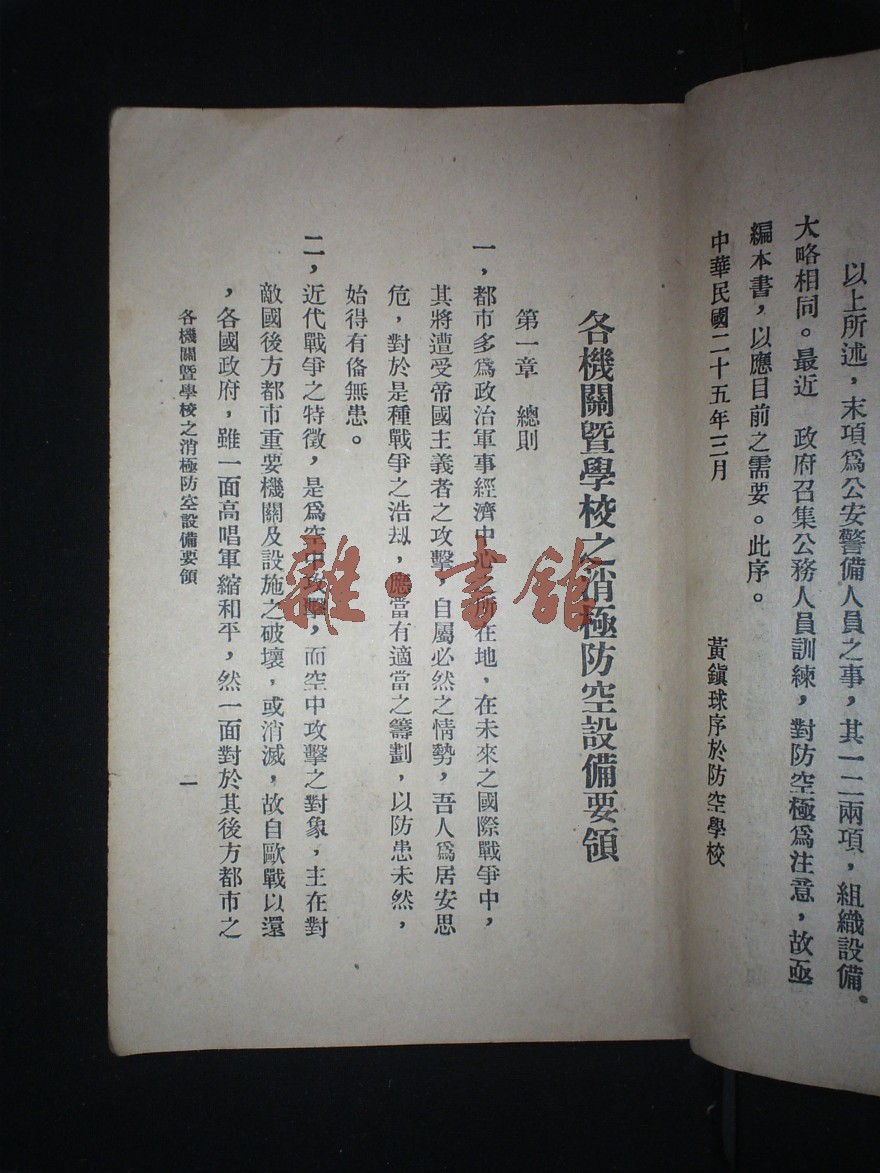 以上所述，末項爲公安警備人員之事，其一二兩項，組織設備。
大略相同。最近　政府召集公務人員訓練，對防空極爲注意，故亟
編本書，以應目前之需要。此序。
中華民國二十五年三月　黃鎭球序於防空學校
各機關暨學校之消極防空設備要領
第一章　總則
一，都市多爲政治軍事經濟中心所在地，在未來之國際戰爭中，
其將遭受帝國主義者之攻擊，自屬必然之情勢，吾人爲居安思
危，對於是種戰爭之浩刼，應當有適當之籌劃，以防患未然，
始得有俻無患。
二，近代戰爭之特徵，是爲空中攻擊，而空中攻擊之對象，主在對
敵國後方都市重要機關及設施之破壞，或消滅，故自歐戰以還
，各國政府，雖一面高唱軍縮和平，然一面對於其後方都市之
各機關暨學校之消極防空設備要領　一
雜·書館